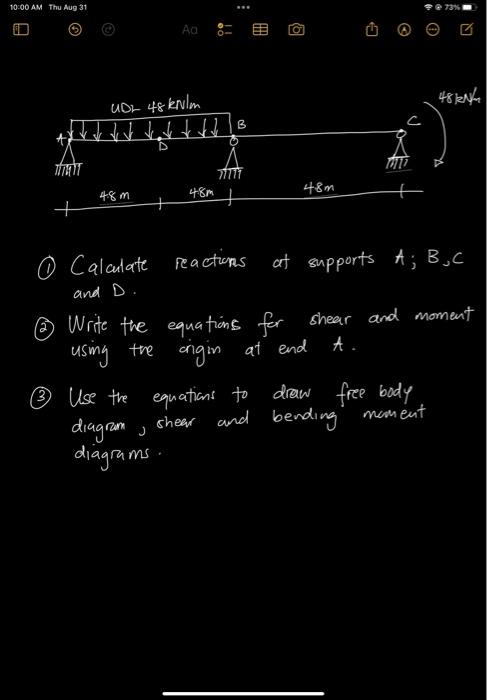 10:00 AM Thu Aug 31
73%
Aa
UDL 48 kN/m
48 kNm
A
B
C
D
48 m
48m
48m
① Calculate reactions at supports A; B, C
and D.
② Write the equations for shear and moment
using the origin at end A.
③ Use the equations to draw free body
diagram, shear and bending moment
diagrams.